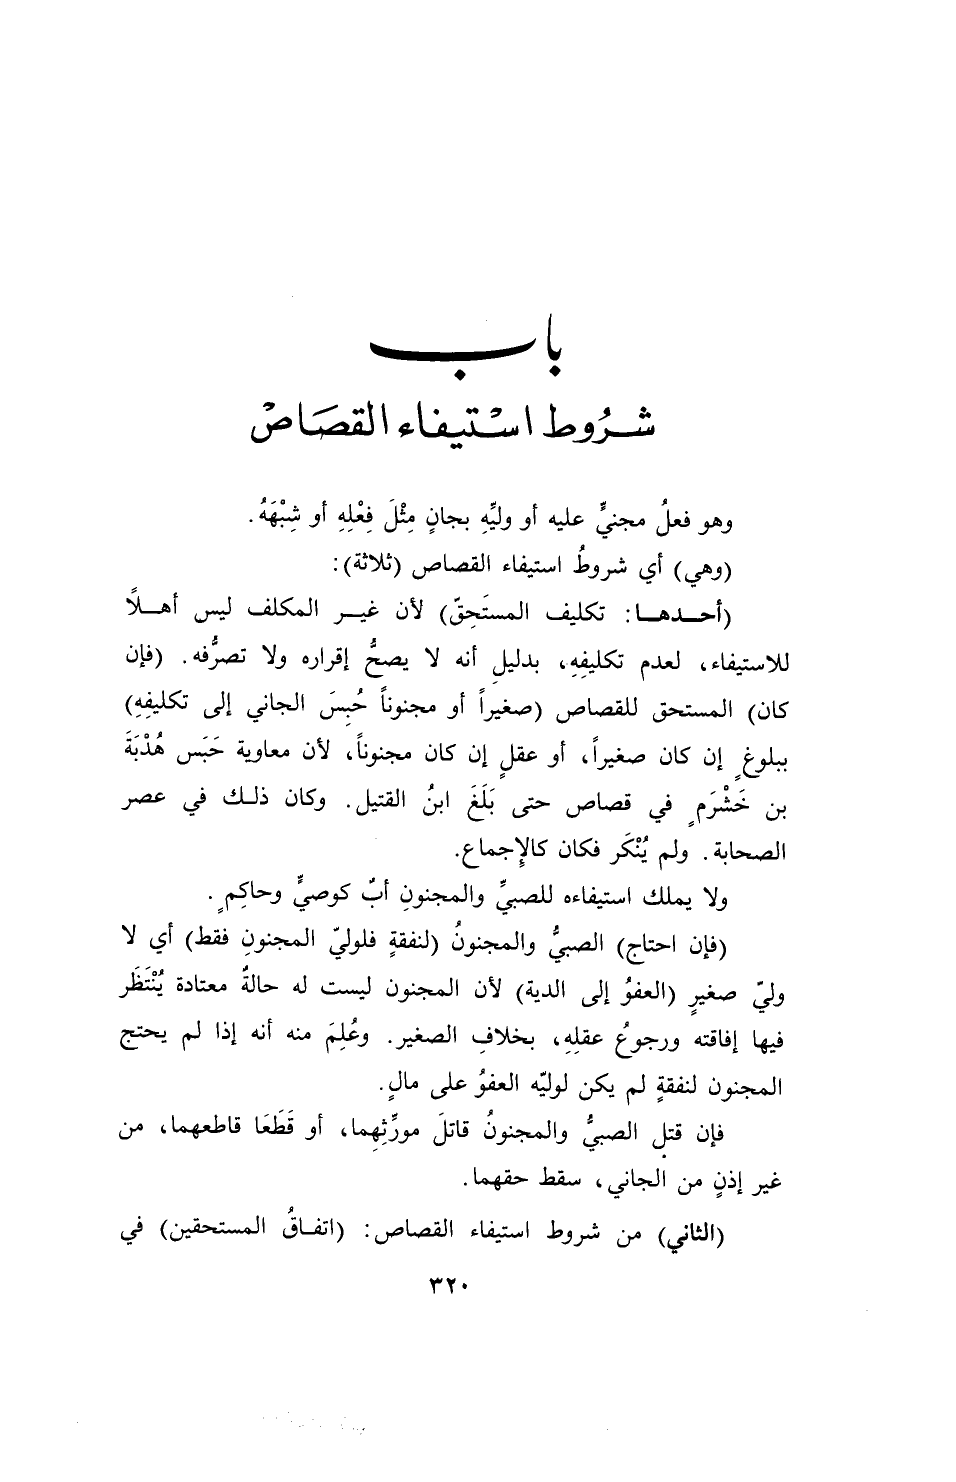 باب
شرُوط استيفاء القصَاصْ
وهو فعلُ مجنيٍّ عليه أو وليِّهِ بجانٍ مِثْلَ فِعْلِهِ أو شِبْهَهُ.
(وهي) أي شروطُ استيفاء القصاص (ثلاثة):
(أحدها: تكليف المستَحِقّ) لأن غير المكلف ليس أهلاً
للاستيفاء، لعدم تكليفِهِ، بدليلِ أنه لا يصحُّ إقراره ولا تصرُّفه. (فإن
كان) المستحق للقصاص (صغيراً أو مجنوناً حُبِسَ الجاني إلى تكليفِهِ)
ببلوغٍ إن كان صغيراً، أو عقلٍ إن كان مجنوناً، لأن معاوية حَبَس هُدْبَةَ
بن خَشْرَمٍ في قصاص حتى بَلَغَ ابنُ القتيل. وكان ذلك في عصر
الصحابة. ولم يُنْكَر فكان كالإجماع.
ولا يملك استيفاءه للصبيِّ والمجنونِ أبٌ كوصيٍّ وحاكِمٍ.
(فإن احتاج) الصبيُّ والمجنونُ (لنفقةٍ فلوليّ المجنونِ فقط) أي لا
وليّ صغيرٍ (العفوُ إلى الدية) لأن المجنون ليست له حالةٌ معتادة يُنْتَظَر
فيها إفاقته ورجوعُ عقلِهِ، بخلافِ الصغير. وعُلِمَ منه أنه إذا لم يحتج
المجنون لنفقةٍ لم يكن لوليّه العفوُ على مالٍ.
فإن قتل الصبيُّ والمجنونُ قاتلَ مورِّثِهِما، أو قَطَعَا قاطعهما، من
غير إذنٍ من الجاني، سقط حقهما.
(الثاني) من شروط استيفاء القصاص: (اتفاقُ المستحقين) في
٣٢٠